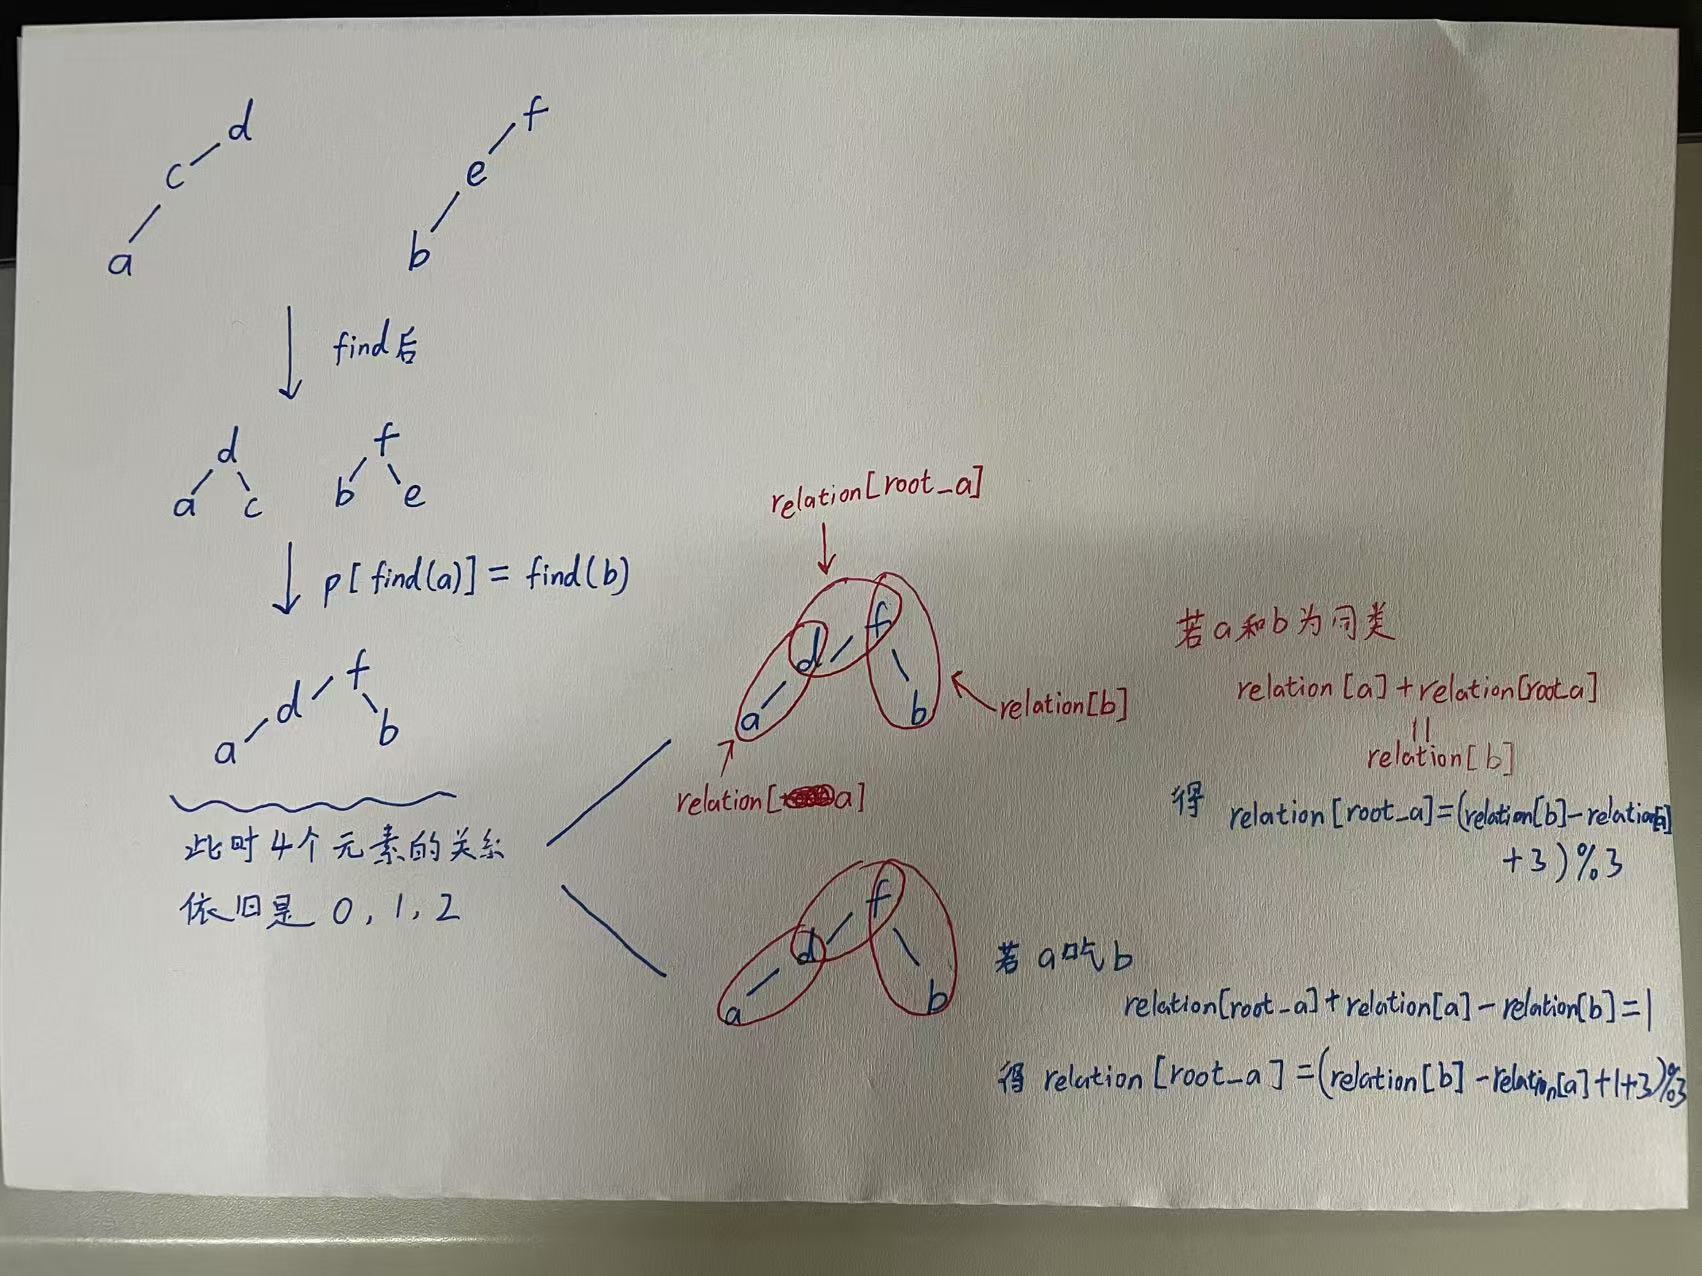 d
c
a
f
e
b
find后
d
a c
f
b e
p[find(a)] = find(b)
f
d
a
b
此时4个元素的关系
依旧是 0, 1, 2
relation[root_a]
f
d
a
b
relation[b]
relation[a]
若a和b为同类
relation[a]+relation[root_a]
=
relation[b]
得 relation[root_a]=(relation[b]-relation[a]
+3)%3
f
d
a
b
若a吃b
relation[root_a]+relation[a]-relation[b]=1
得 relation[root_a]=(relation[b]-relation[a]+1+3)%3